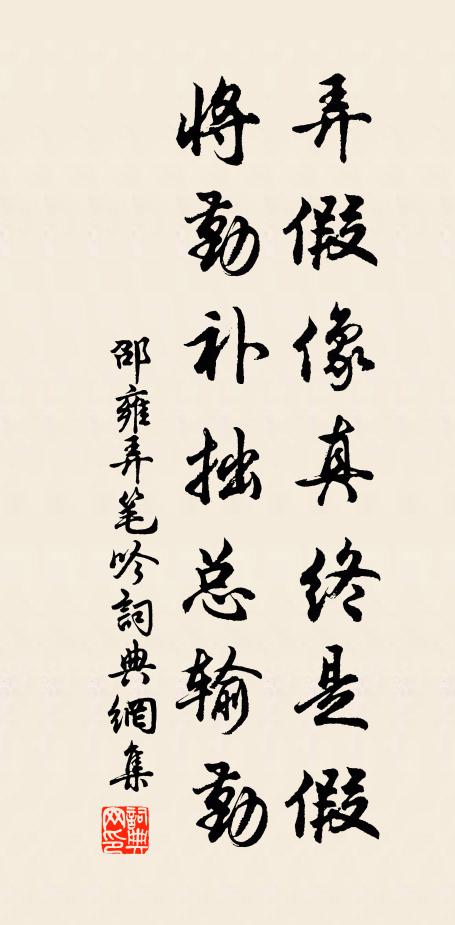 弄假像真终是假
将勤补拙总输勤
邵雍弄笔吟詞典網集
詞典
网印